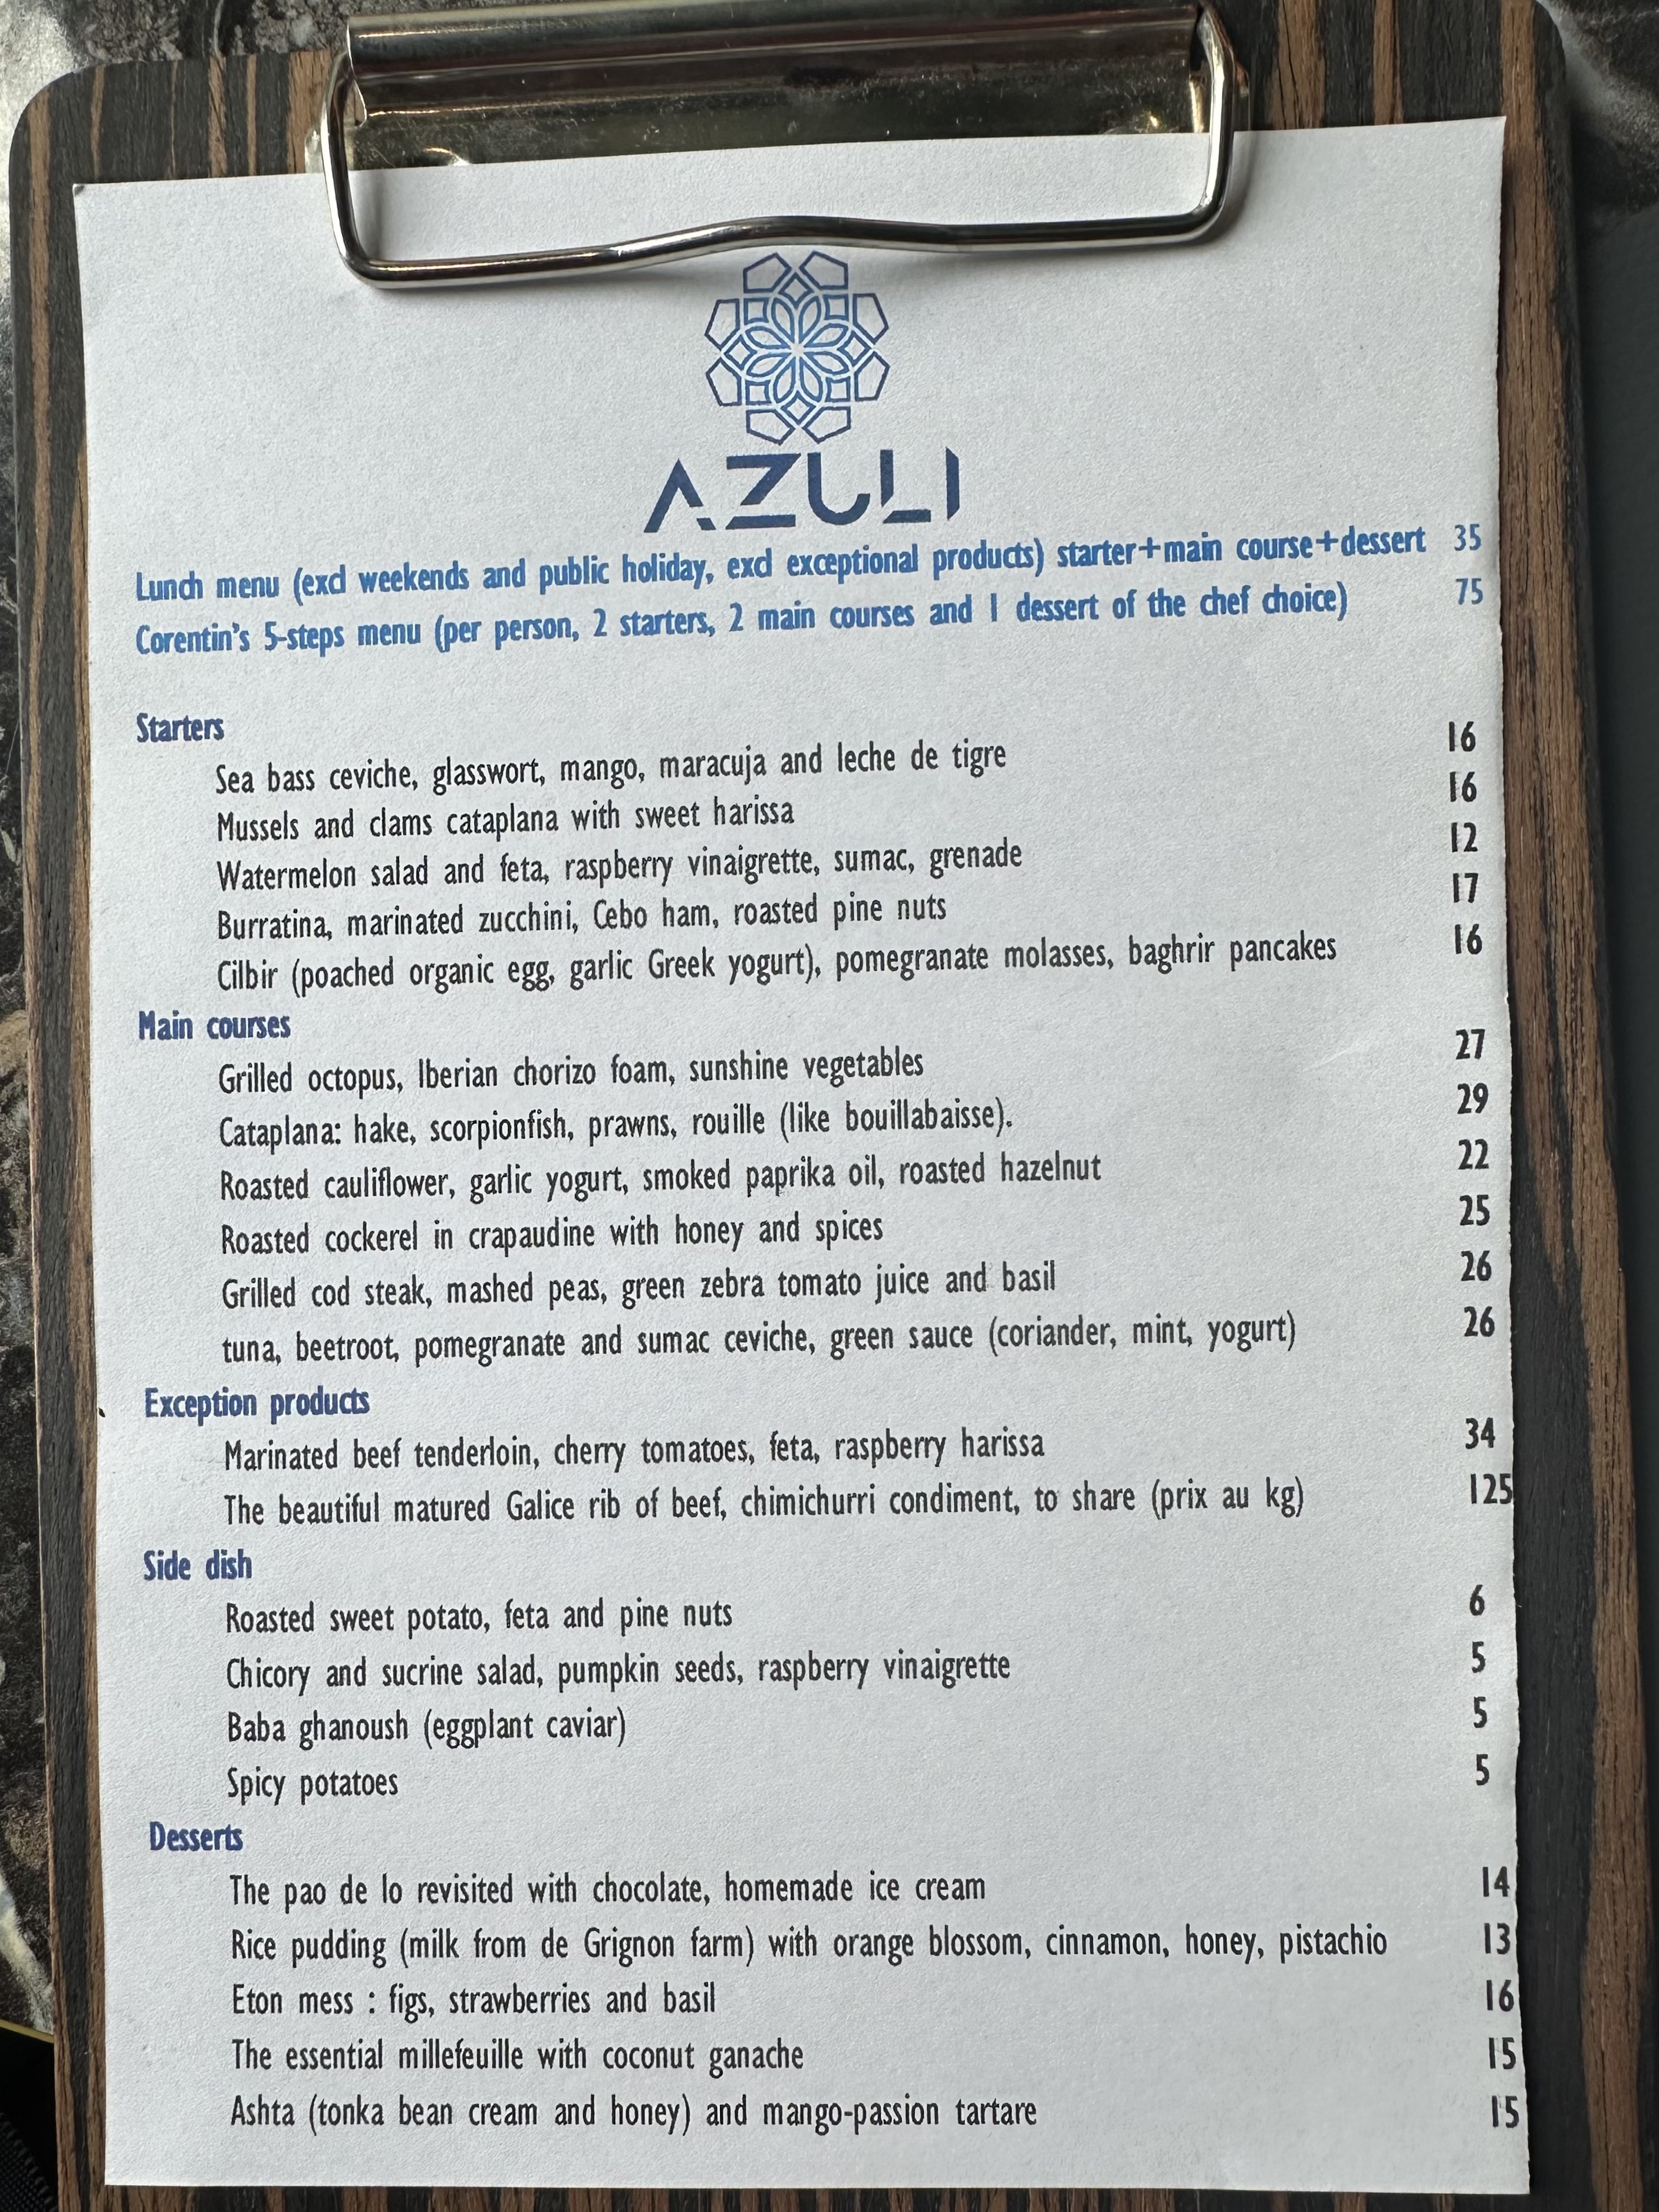 AZULI
Lunch menu (excl weekends and public holiday, excl exceptional products) starter+main course+dessert 35
Corentin's 5-steps menu (per person, 2 starters, 2 main courses and 1 dessert of the chef choice) 75
Starters
Sea bass ceviche, glasswort, mango, maracuja and leche de tigre 16
Mussels and clams cataplana with sweet harissa 16
Watermelon salad and feta, raspberry vinaigrette, sumac, grenade 12
Burratina, marinated zucchini, Cebo ham, roasted pine nuts 17
Cilbir (poached organic egg, garlic Greek yogurt), pomegranate molasses, baghrir pancakes 16
Main courses
Grilled octopus, Iberian chorizo foam, sunshine vegetables 27
Cataplana: hake, scorpionfish, prawns, rouille (like bouillabaisse). 29
Roasted cauliflower, garlic yogurt, smoked paprika oil, roasted hazelnut 22
Roasted cockerel in crapaudine with honey and spices 25
Grilled cod steak, mashed peas, green zebra tomato juice and basil 26
tuna, beetroot, pomegranate and sumac ceviche, green sauce (coriander, mint, yogurt) 26
Exception products
Marinated beef tenderloin, cherry tomatoes, feta, raspberry harissa 34
The beautiful matured Galice rib of beef, chimichurri condiment, to share (prix au kg) 125
Side dish
Roasted sweet potato, feta and pine nuts 6
Chicory and sucrine salad, pumpkin seeds, raspberry vinaigrette 5
Baba ghanoush (eggplant caviar) 5
Spicy potatoes 5
Desserts
The pao de lo revisited with chocolate, homemade ice cream 14
Rice pudding (milk from de Grignon farm) with orange blossom, cinnamon, honey, pistachio 13
Eton mess : figs, strawberries and basil 16
The essential millefeuille with coconut ganache 15
Ashta (tonka bean cream and honey) and mango-passion tartare 15